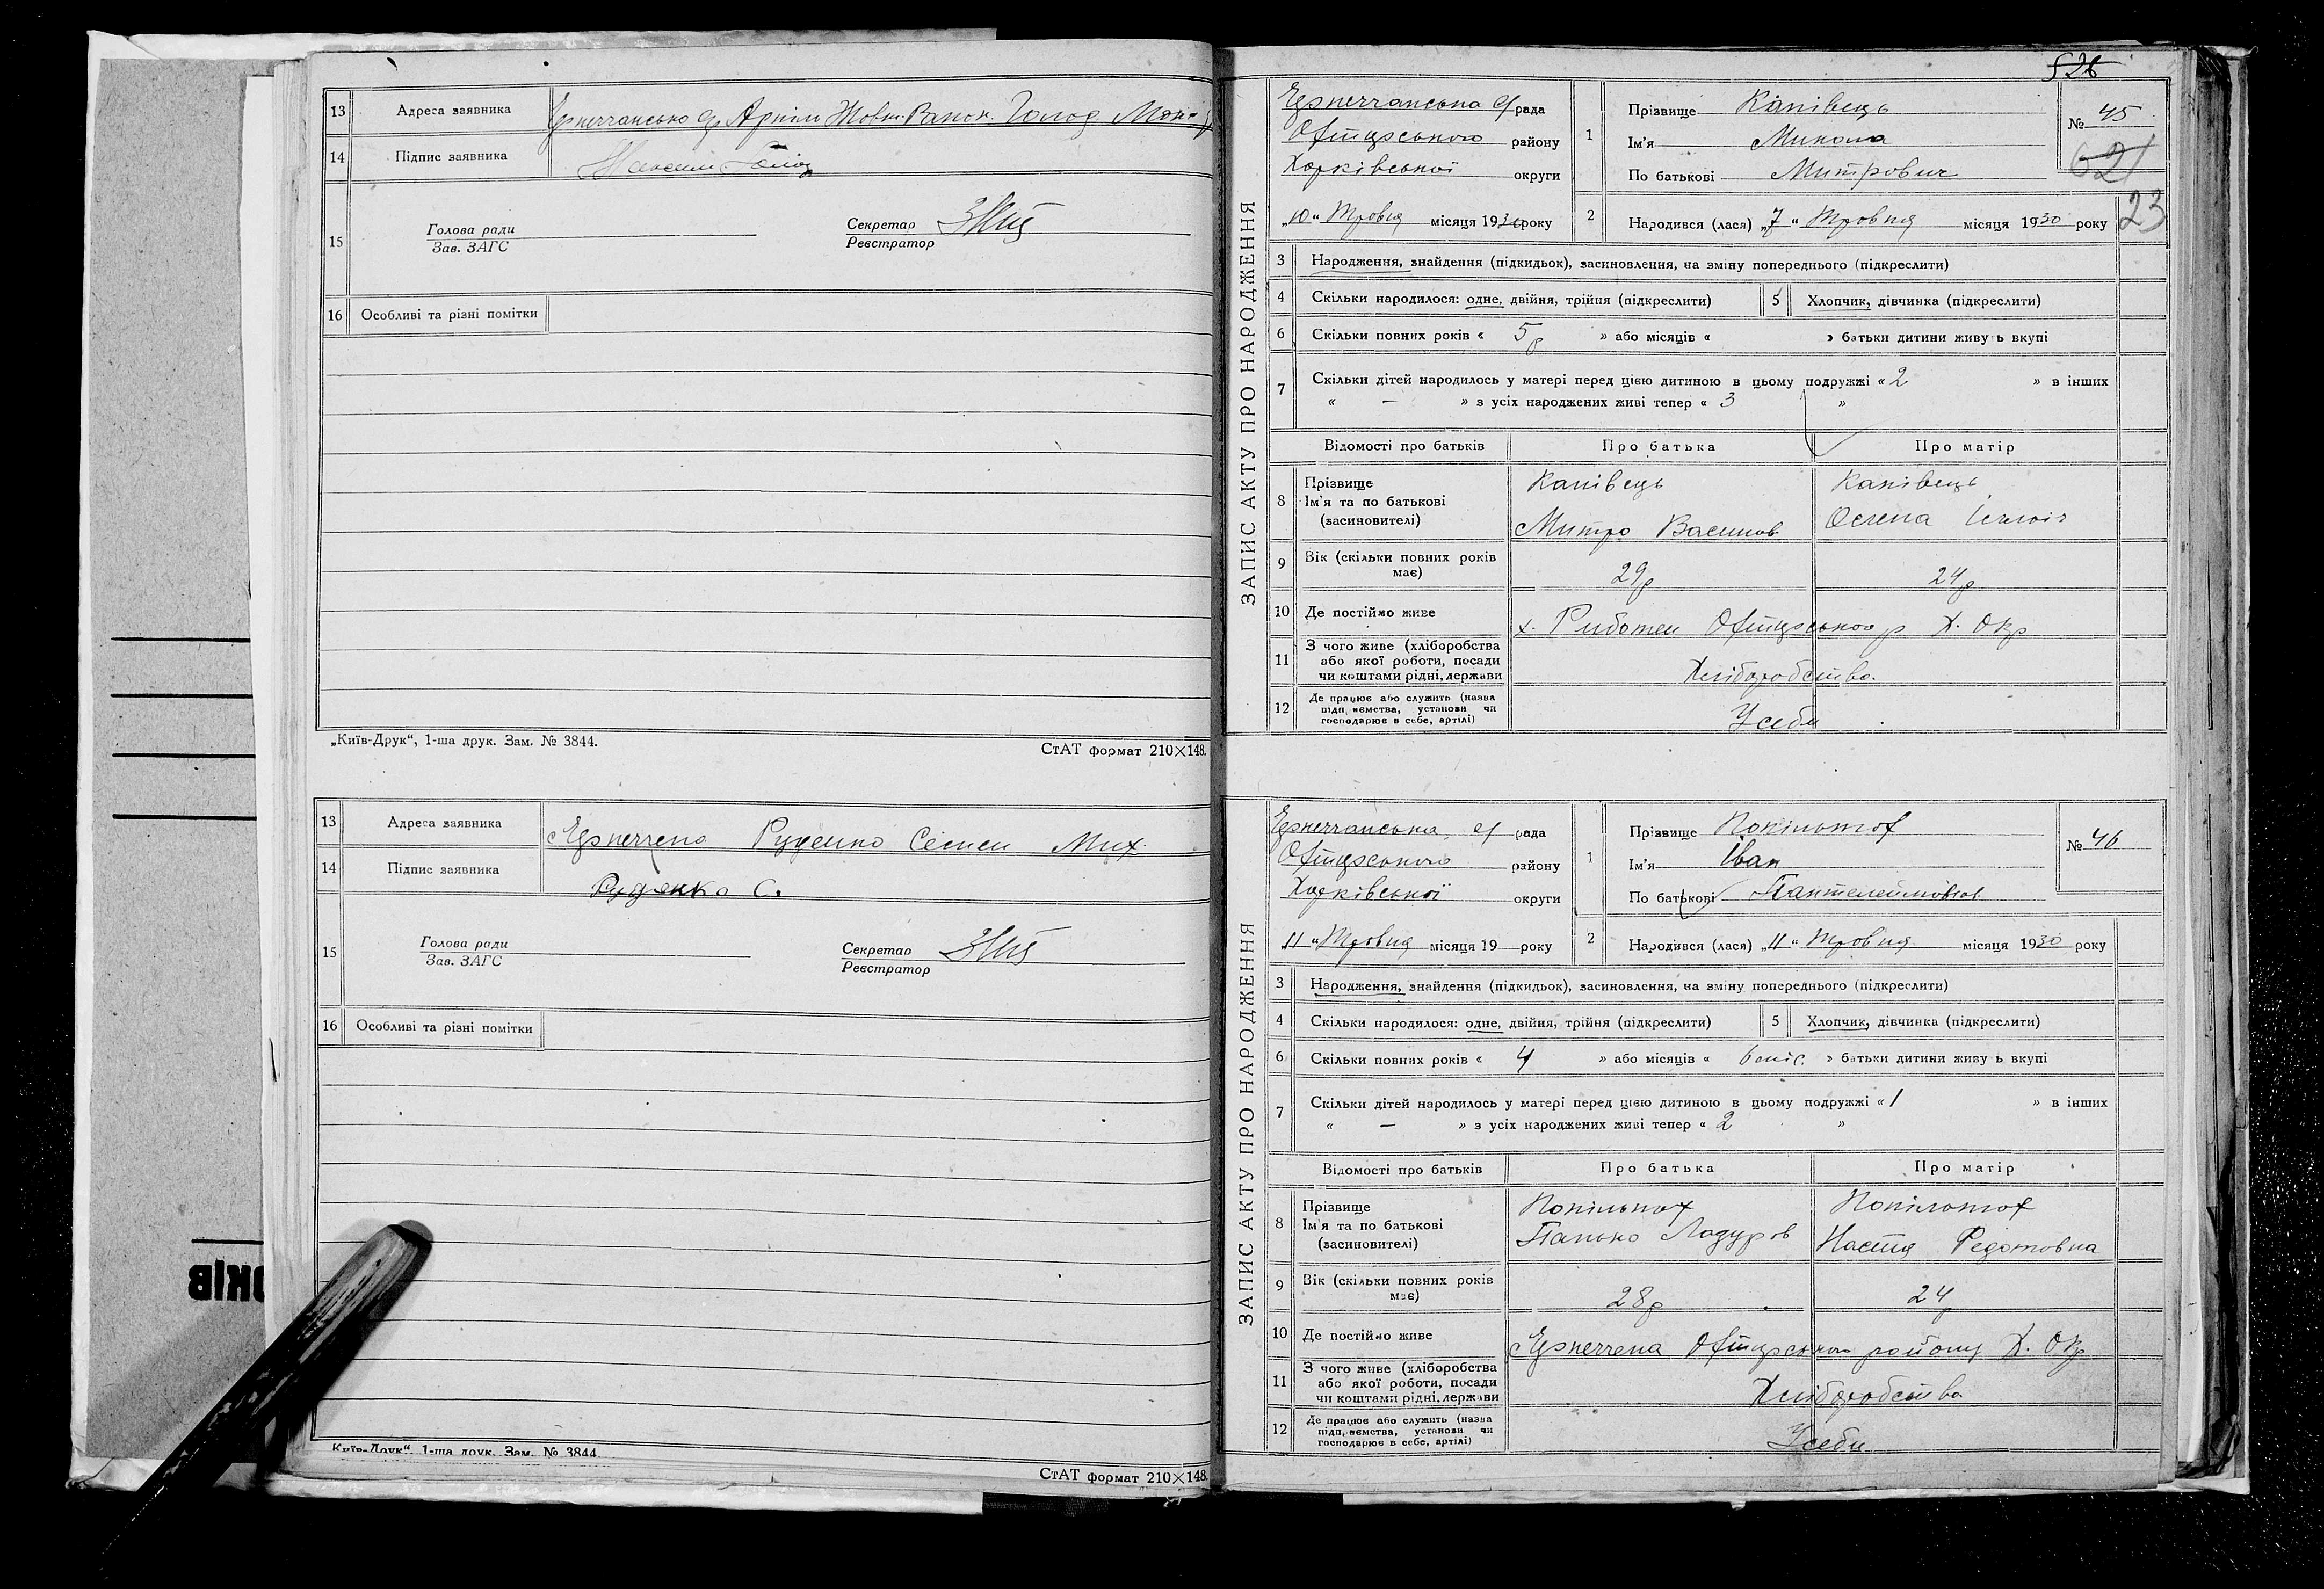 13 Адреса заявника
14 Підпис заявника
15 Голова ради
Зав. ЗАГС
Секретар
Реєстратор
16 Особливі та різні помітки
„Київ-Друк“, 1-ша друк. Зам. № 3844.
СтАТ формат 210×148.
13 Адреса заявника Руденко Семен Мих.
14 Підпис заявника Руденко С.
15 Голова ради
Зав. ЗАГС
Секретар
Реєстратор
16 Особливі та різні помітки
Київ-Друк“, 1-ша друк. Зам. № 3844.
СтАТ формат 210×148.
526
ЗАПИС АКТУ ПРО НАРОДЖЕННЯ
рада
району
Харківської округи
„10“ Травня місяця 1930 року
1 Прізвище Канівець
Ім'я Микола
По батькові Митрович
№ 45
621
23
2 Народився (лася) „7“ Травня місяця 1930 року
3 Народження, знайдення (підкидьок), засиновлення, на зміну попереднього (підкреслити)
4 Скільки народилося: одне, двійня, трійня (підкреслити)
5 Хлопчик, дівчинка (підкреслити)
6 Скільки повних років « 5р » або місяців « » батьки дитини живуть вкупі
7 Скільки дітей народилось у матері перед цією дитиною в цьому подружжі « 2 » в інших
« — » з усіх народжених живі тепер « 3 »
Відомості про батьків Про батька Про матір
8 Прізвище Канівець Канівець
Ім'я та по батькові
(засиновителі) Митро Васильов
9 Вік (скільки повних років
має) 29р 24р
10 Де постійно живе Х. Окр
11 З чого живе (хліборобства
або якої роботи, посади
чи коштами рідні, держави Хліборобства
12 Де працює або служить (назва
підприємства, установи чи
господарює в себе, артілі) Усебе
ЗАПИС АКТУ ПРО НАРОДЖЕННЯ
рада
району
Харківської округи
„11“ Травня місяця 19 року
1 Прізвище
Ім'я Іван
По батькові Пантелеймонов
№ 46
2 Народився (лася) „11“ Травня місяця 1930 року
3 Народження, знайдення (підкидьок), засиновлення, на зміну попереднього (підкреслити)
4 Скільки народилося: одне, двійня, трійня (підкреслити)
5 Хлопчик, дівчинка (підкреслити)
6 Скільки повних років « 4 » або місяців « 6 міс. » батьки дитини живуть вкупі
7 Скільки дітей народилось у матері перед цією дитиною в цьому подружжі « 1 » в інших
« — » з усіх народжених живі тепер « 2 »
Відомості про батьків Про батька Про матір
8 Прізвище
Ім'я та по батькові
(засиновителі) Панько Настя Федотовна
9 Вік (скільки повних років
має) 28р 24
10 Де постійно живе району Х. Окр
11 З чого живе (хліборобства
або якої роботи, посади
чи коштами рідні, держави Хліборобства
12 Де працює або служить (назва
підприємства, установи чи
господарює в себе, артілі) Усебе